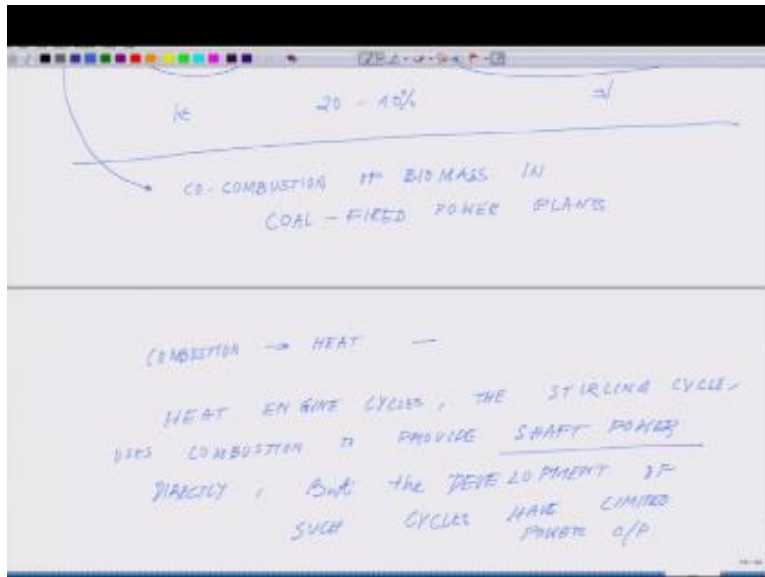 20 - 40%
CO-COMBUSTION OF BIOMASS IN
COAL-FIRED POWER PLANTS
COMBUSTION → HEAT —
HEAT ENGINE CYCLES, THE STIRLING CYCLE,
USES COMBUSTION TO PROVIDE SHAFT POWER
DIRECTLY, But the DEVELOPMENT OF
SUCH CYCLES HAVE LIMITED
POWER O/P